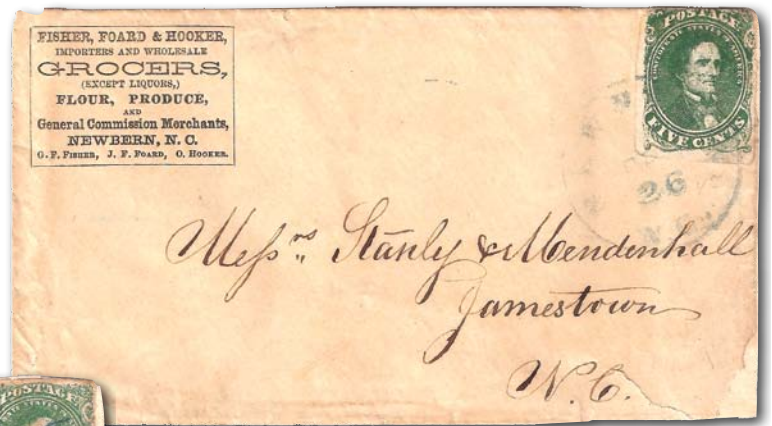 FISHER, FOARD & HOOKER,
IMPORTERS AND WHOLESALE
GROCERS,
(EXCEPT LIQUORS,)
FLOUR, PRODUCE,
AND
General Commission Merchants,
NEWBERN, N. C.
G. F. FISHER, J. F. FOARD, O. HOOKER.
POSTAGE
CONFEDERATE STATES OF AMERICA
FIVE CENTS
26
N.C.
Messrs Stanly & Mendenhall
Jamestown
N. C.
POSTAGE